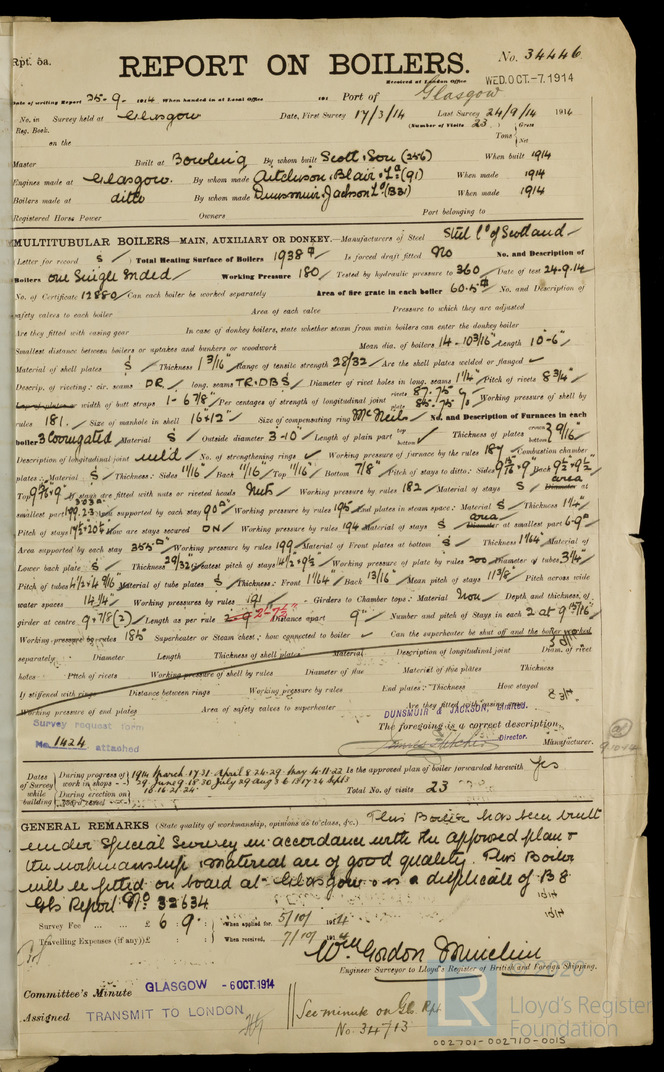 Rpt. 5a.
REPORT ON BOILERS.
No. 34446
Received at London Office WED. OCT. -7. 1914
Date of writing Report 25.9.1914 When handed in at Local Office 191 Port of Glasgow
No. in Survey held at Glasgow Date, First Survey 17/3/14 Last Survey 24/9/14 1914
Reg. Book. (Number of Visits 23)
on the Tons { Gross Net
Master Built at Bowling By whom built Scott & Son (256) When built 1914
Engines made at Glasgow. By whom made Aitchison, Blair Ld (91) When made 1914
Boilers made at ditto By whom made Dunsmuir & Jackson Ld (331) When made 1914
Registered Horse Power Owners Port belonging to
MULTITUBULAR BOILERS—MAIN, AUXILIARY OR DONKEY.—Manufacturers of Steel Steel Co of Scotland
Letter for record S Total Heating Surface of Boilers 1938 Is forced draft fitted No No. and Description of
Boilers One Single Ended Working Pressure 180 Tested by hydraulic pressure to 360 Date of test 24.9.14
No. of Certificate 12880 Can each boiler be worked separately Area of fire grate in each boiler 60.5 No. and Description of
safety valves to each boiler Area of each valve Pressure to which they are adjusted
Are they fitted with easing gear In case of donkey boilers, state whether steam from main boilers can enter the donkey boiler
Smallest distance between boilers or uptakes and bunkers or woodwork Mean dia. of boilers 14-10 3/16" Length 10-6"
Material of shell plates S Thickness 1 3/16" Range of tensile strength 28/32 Are the shell plates welded or flanged
Descrip. of riveting: cir. seams DR long. seams TR.DBS Diameter of rivet holes in long. seams 1 1/4" Pitch of rivets 8 3/4"
Lap of plates or width of butt straps 1-6 7/8" Per centages of strength of longitudinal joint rivets 87.75 plate 85.75 % Working pressure of shell by
rules 181 Size of manhole in shell 16"×12" Size of compensating ring McNeils No. and Description of Furnaces in each
boiler 3 Corrugated Material S Outside diameter 3-10" Length of plain part top bottom Thickness of plates crown bottom } 9/16"
Description of longitudinal joint weld No. of strengthening rings Working pressure of furnace by the rules 187 Combustion chamber
plates: Material S Thickness: Sides 11/16" Back 11/16" Top 11/16" Bottom 7/8" Pitch of stays to ditto: Sides 9 Back 9 1/2 × 9 1/2
Top If stays are fitted with nuts or riveted heads Nuts Working pressure by rules 182 Material of stays S area Diameter at
smallest part Area supported by each stay 90 Working pressure by rules 195 End plates in steam space: Material S Thickness 1 1/4"
Pitch of stays How are stays secured DN Working pressure by rules 194 Material of stays S area Diameter at smallest part 6.9
Area supported by each stay 355 Working pressure by rules 199 Material of Front plates at bottom S Thickness 1 1/64" Material of
Lower back plate S Thickness 29/32 Greatest pitch of stays 14 1/2 × 9 1/2 Working pressure of plate by rules 200 Diameter of tubes 3 1/4"
Pitch of tubes 4 1/2 × 4 9/16 Material of tube plates S Thickness: Front 1 1/64" Back 13/16" Mean pitch of stays 11 3/8 Pitch across wide
water spaces 14 1/4" Working pressures by rules 191 Girders to Chamber tops: Material Iron Depth and thickness of
girder at centre 9 × 7/8 (2) Length as per rule 2-7 Distance apart 9" Number and pitch of Stays in each 2 at 9 15/16"
Working pressure by rules 182 Superheater or Steam chest; how connected to boiler Can the superheater be shut off and the boiler worked
separately Diameter Length Thickness of shell plates Material Description of longitudinal joint Diam. of rivet
holes Pitch of rivets Working pressure of shell by rules Diameter of flue Material of flue plates Thickness
If stiffened with rings Distance between rings Working pressure by rules End plates: Thickness How stayed
Working pressure of end plates Area of safety valves to superheater Are they fitted with easing gear
Survey request form
No. 1424 attached
DUNSMUIR & JACKSON, Limited.
The foregoing is a correct description,
Director. Manufacturer.
Dates of Survey while building { During progress of work in shops 1914 March 17.31 April 8.24.29 May 4.11.22 Is the approved plan of boiler forwarded herewith Yes
During erection on board vessel Total No. of visits 23
GENERAL REMARKS (State quality of workmanship, opinions as to class, &c.) This Boiler has been built
under Special Survey in accordance with the approved plan &
the workmanship & material are of good quality. This Boiler
will be fitted on board at Glasgow & is a duplicate of B 8
Gls Report No 32634
Survey Fee ... £ 6 : 9 : When applied for, 5/10/1914
Travelling Expenses (if any) £ : : When received, 7/10/1914
Wm Gordon
Engineer Surveyor to Lloyd's Register of British and Foreign Shipping.
Committee's Minute GLASGOW -6 OCT. 1914
Assigned TRANSMIT TO LONDON
See minute on Gls Rpt
No. 34713
© 2020
LR
Lloyd's Register
Foundation
002701-002710-0015